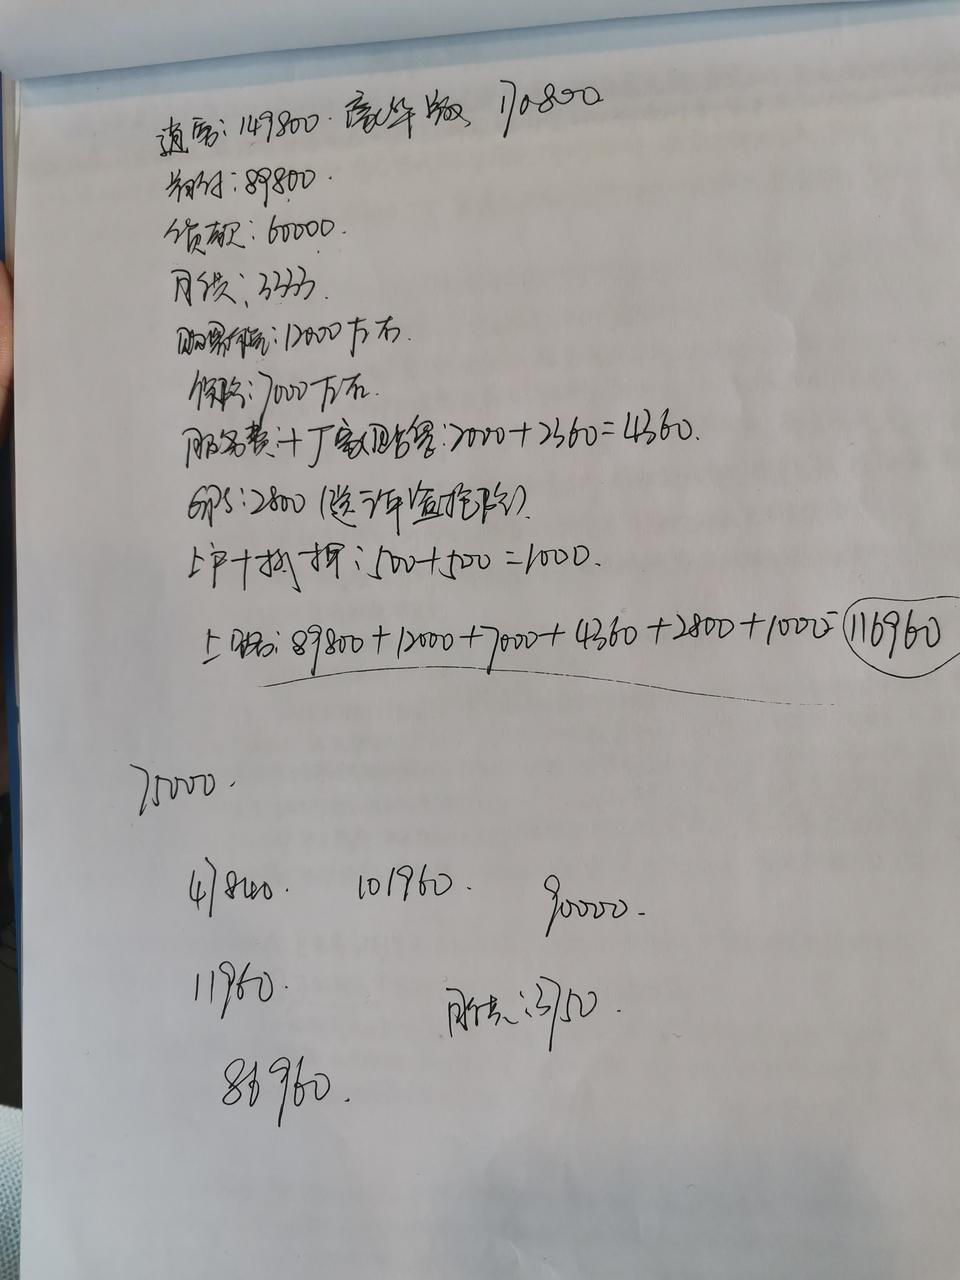 逍客:149800.豪华版 170800
首付:89800.
贷款:60000.
月供:3333.
购置税:12000左右.
保险:7000左右.
服务费+厂家贴息:2000+2360=4360.
GPS:2800(送1年盗抢险)
上户+抵押:500+500=1000.
上路:89800+12000+7000+4360+2800+1000=116960
75000.
47840. 101960. 90000.
11960.
月供:3750.
86960.